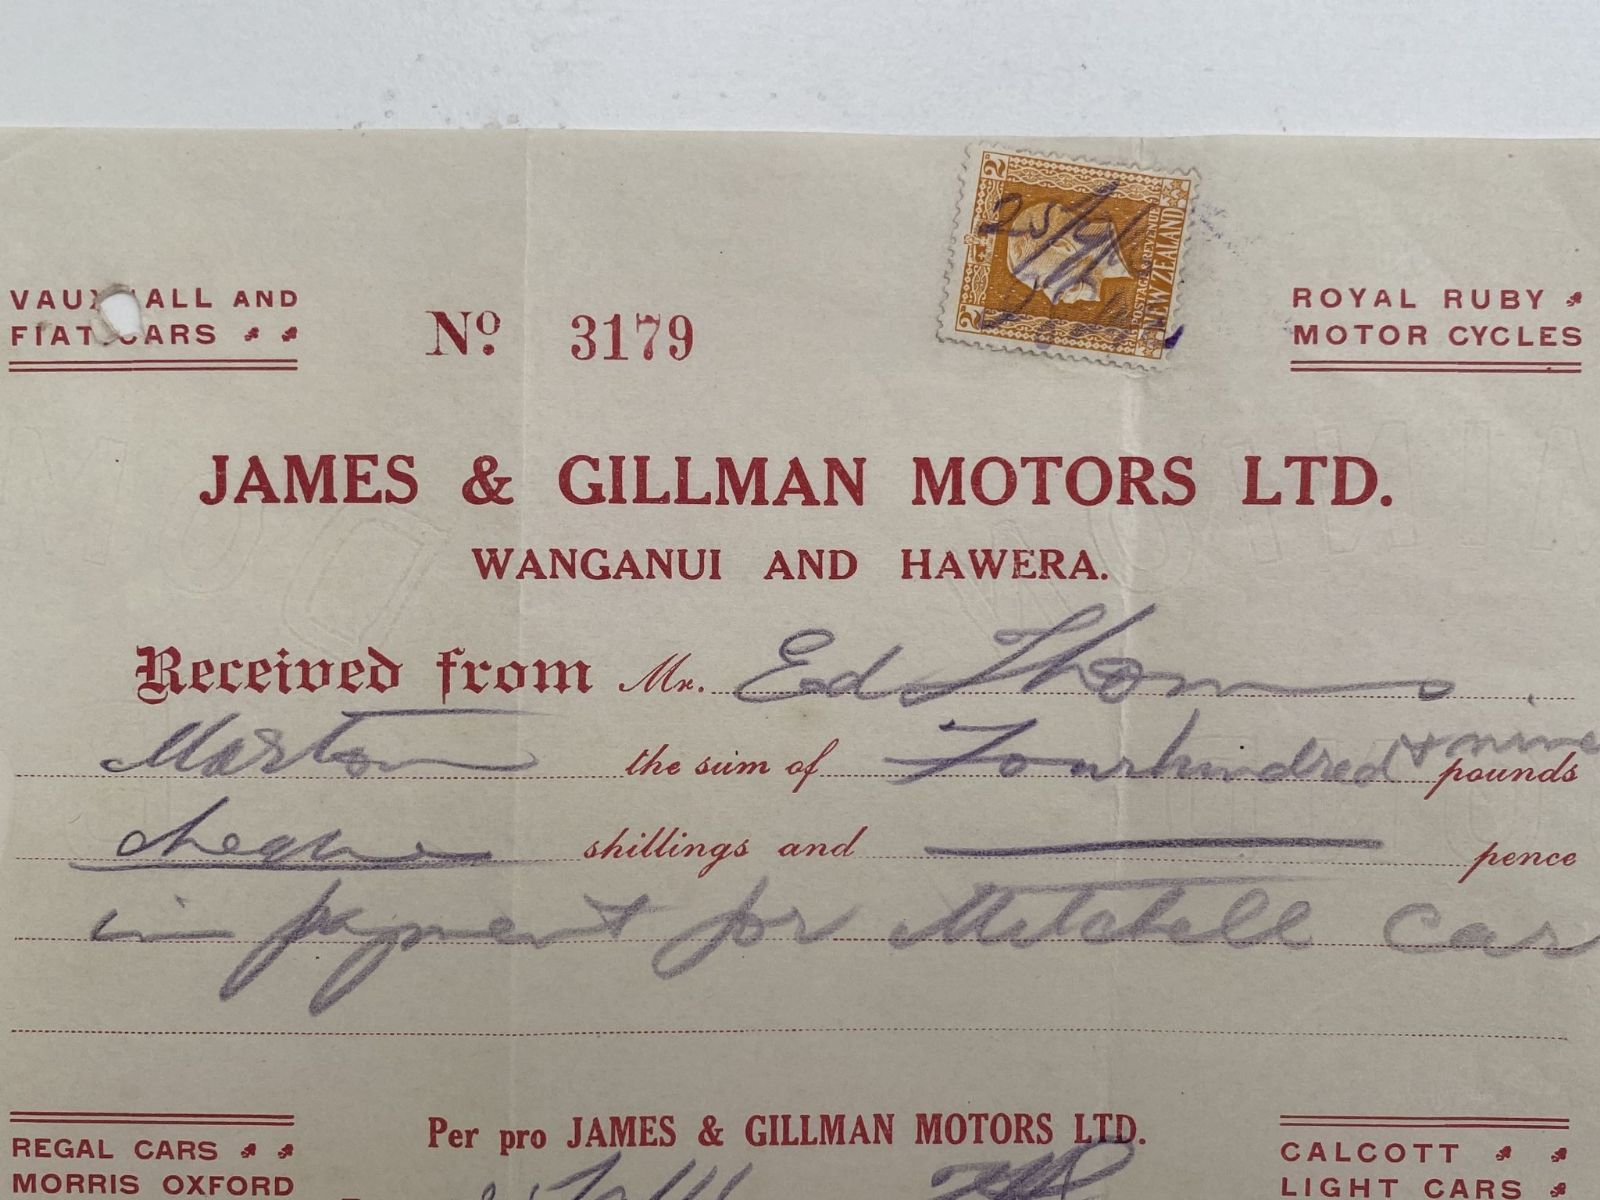 2D
POSTAGE & REVENUE
NEW ZEALAND
2D
25/9/
VAUXHALL AND
FIAT CARS
Nº 3179
ROYAL RUBY
MOTOR CYCLES
JAMES & GILLMAN MOTORS LTD.
WANGANUI AND HAWERA.
Received from Mr. Ed Thomas
Marton the sum of Four hundred & nine pounds
cheque shillings and pence
in payment for Mitchell Car
REGAL CARS
MORRIS OXFORD
Per pro JAMES & GILLMAN MOTORS LTD.
CALCOTT
LIGHT CARS